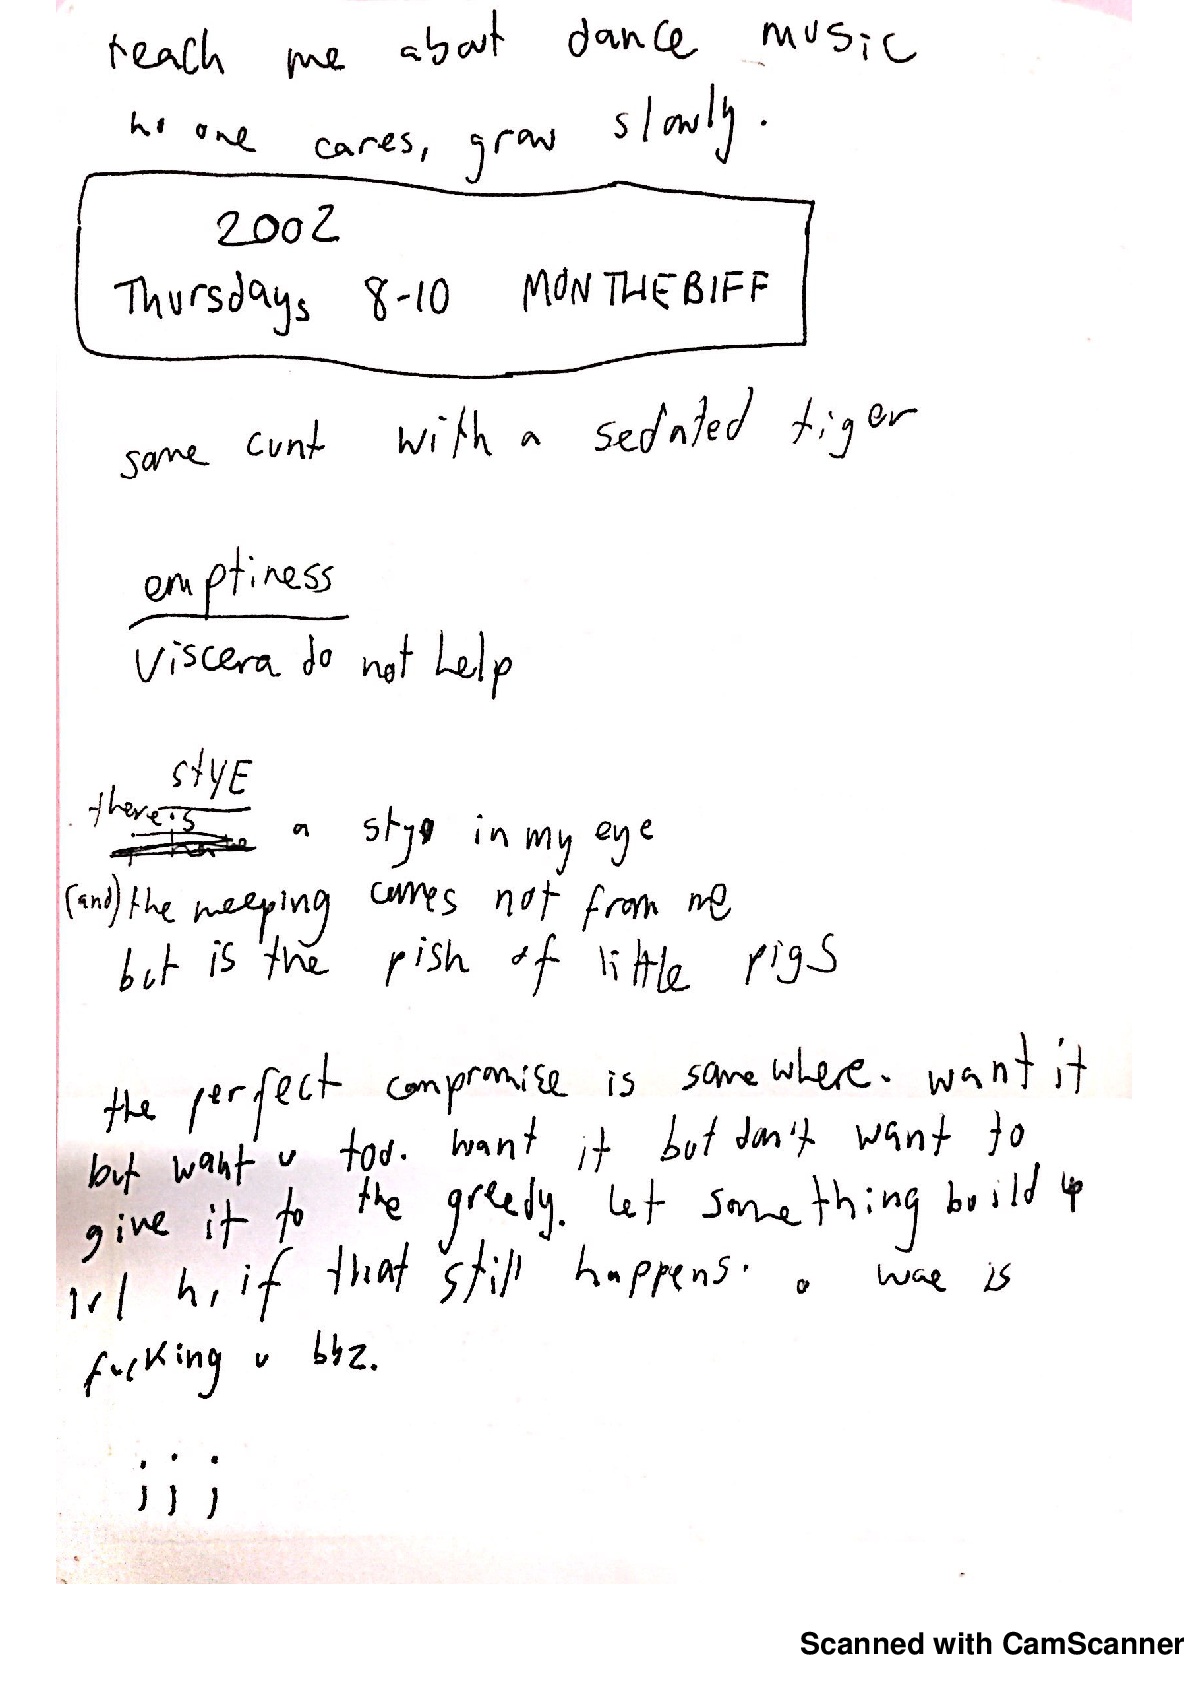 teach me about dance music
no one cares, grow slowly.
2002
Thursdays 8-10 MON THE BIFF
some cunt with a sedated tiger
emptiness
viscera do not help
stYE
there is a stye in my eye
(and) the weeping comes not from me
but is the pish of little pigs
the perfect compromise is somewhere. want it
but want u too. want it but don't want to
give it to the greedy. let something build up
irl h, if that still happens. wae is
fucking u bbz.
; ; ;
Scanned with CamScanner